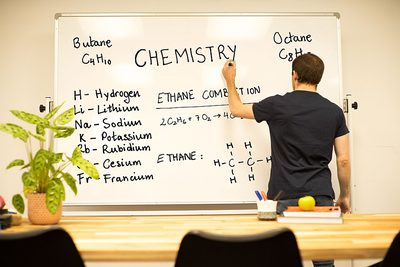 Butane
C4H10
CHEMISTRY
Octane
C8H
H - Hydrogen
Li - Lithium
Na - Sodium
K - Potassium
Rb - Rubidium
- Cesium
Fr - Francium
ETHANE COMBUSTION
2C2H6 + 7O2 → 4C
ETHANE :
H H
H-C-C-H
H H